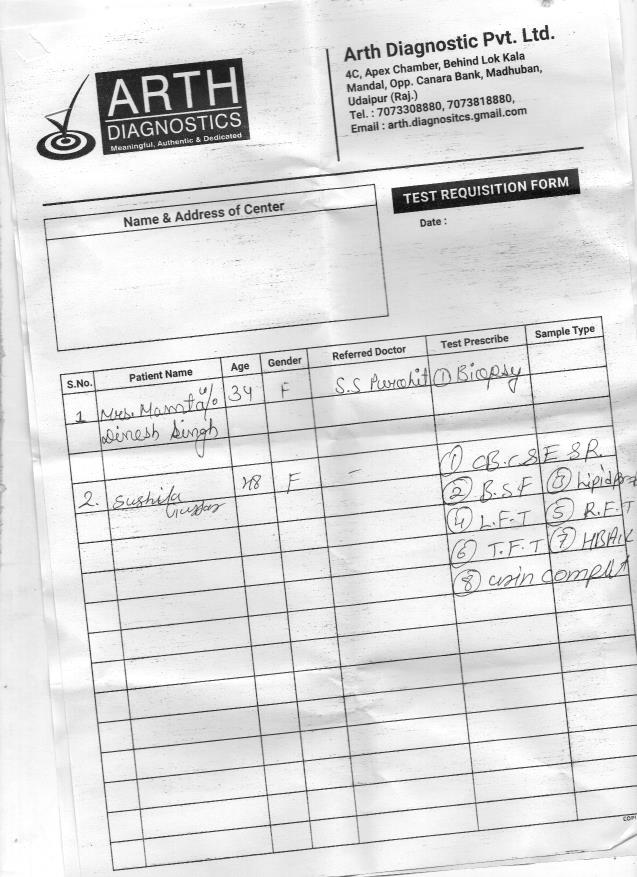 ARTH
DIAGNOSTICS
Meaningful, Authentic & Dedicated
Arth Diagnostic Pvt. Ltd.
4C, Apex Chamber, Behind Lok Kala
Mandal, Opp. Canara Bank, Madhuban,
Udaipur (Raj.)
Tel. : 7073308880, 7073818880,
Email : arth.diagnositcs.gmail.com
TEST REQUISITION FORM
Name & Address of Center
Date :
S.No. Patient Name Age Gender Referred Doctor Test Prescribe Sample Type
1 Mrs. Mamta w/o 34 F S.S Purohit ① Biopsy
Dinesh Singh
① CBC & ESR.
2. Sushila 48 F - ② B.S.F ③ Lipid
④ L.F.T ⑤ R.F.T
⑥ T.F.T ⑦ HBA1c
⑧ urin complet
COPI